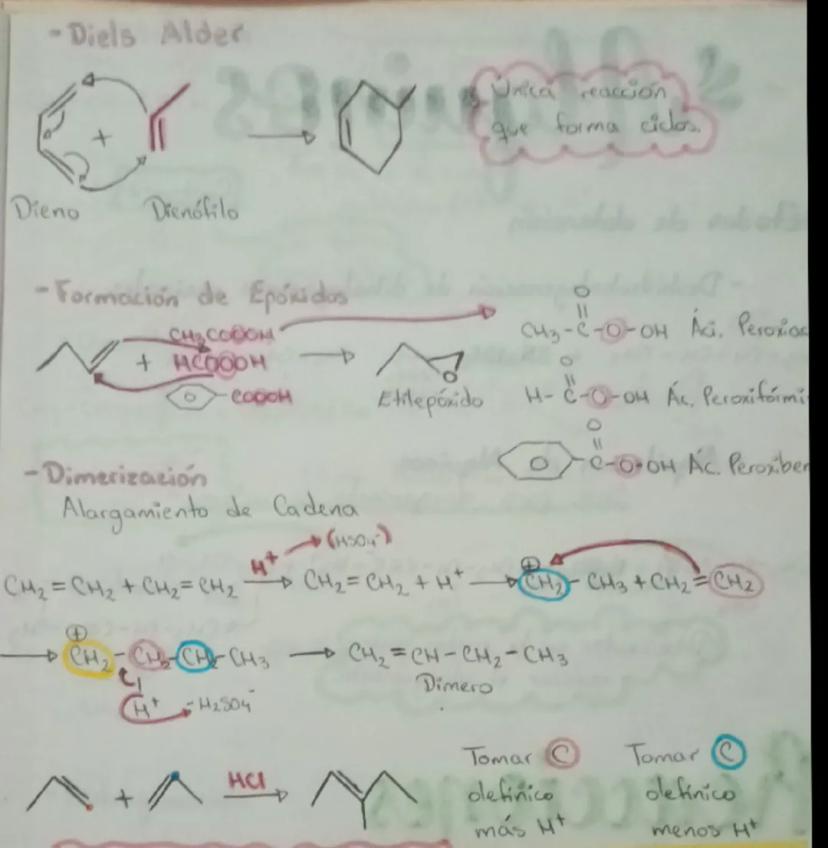 - Diels Alder
Única reacción
que forma ciclos.
+
Dieno Dienófilo
- Formación de Epóxidos
CH3COOOH
+ HCOOOH
-COOOH
Etilepóxido
O
CH3-C-O-OH Áci. Peroxiac
O
H-C-O-OH Ác. Peroxifórmi
O
C-O-OH Ác. Peroxiben
- Dimerización
Alargamiento de Cadena
(HSO4-)
CH2=CH2 + CH2=CH2 H+ → CH2=CH2 + H+ → ⊕CH2-CH3 + CH2=CH2
→ ⊕CH2-CH2-CH2-CH3 → CH2=CH-CH2-CH3
H+ -H2SO4- Dimero
+ HCl →
Tomar C
olefínico
más H+
Tomar C
olefínico
menos H+